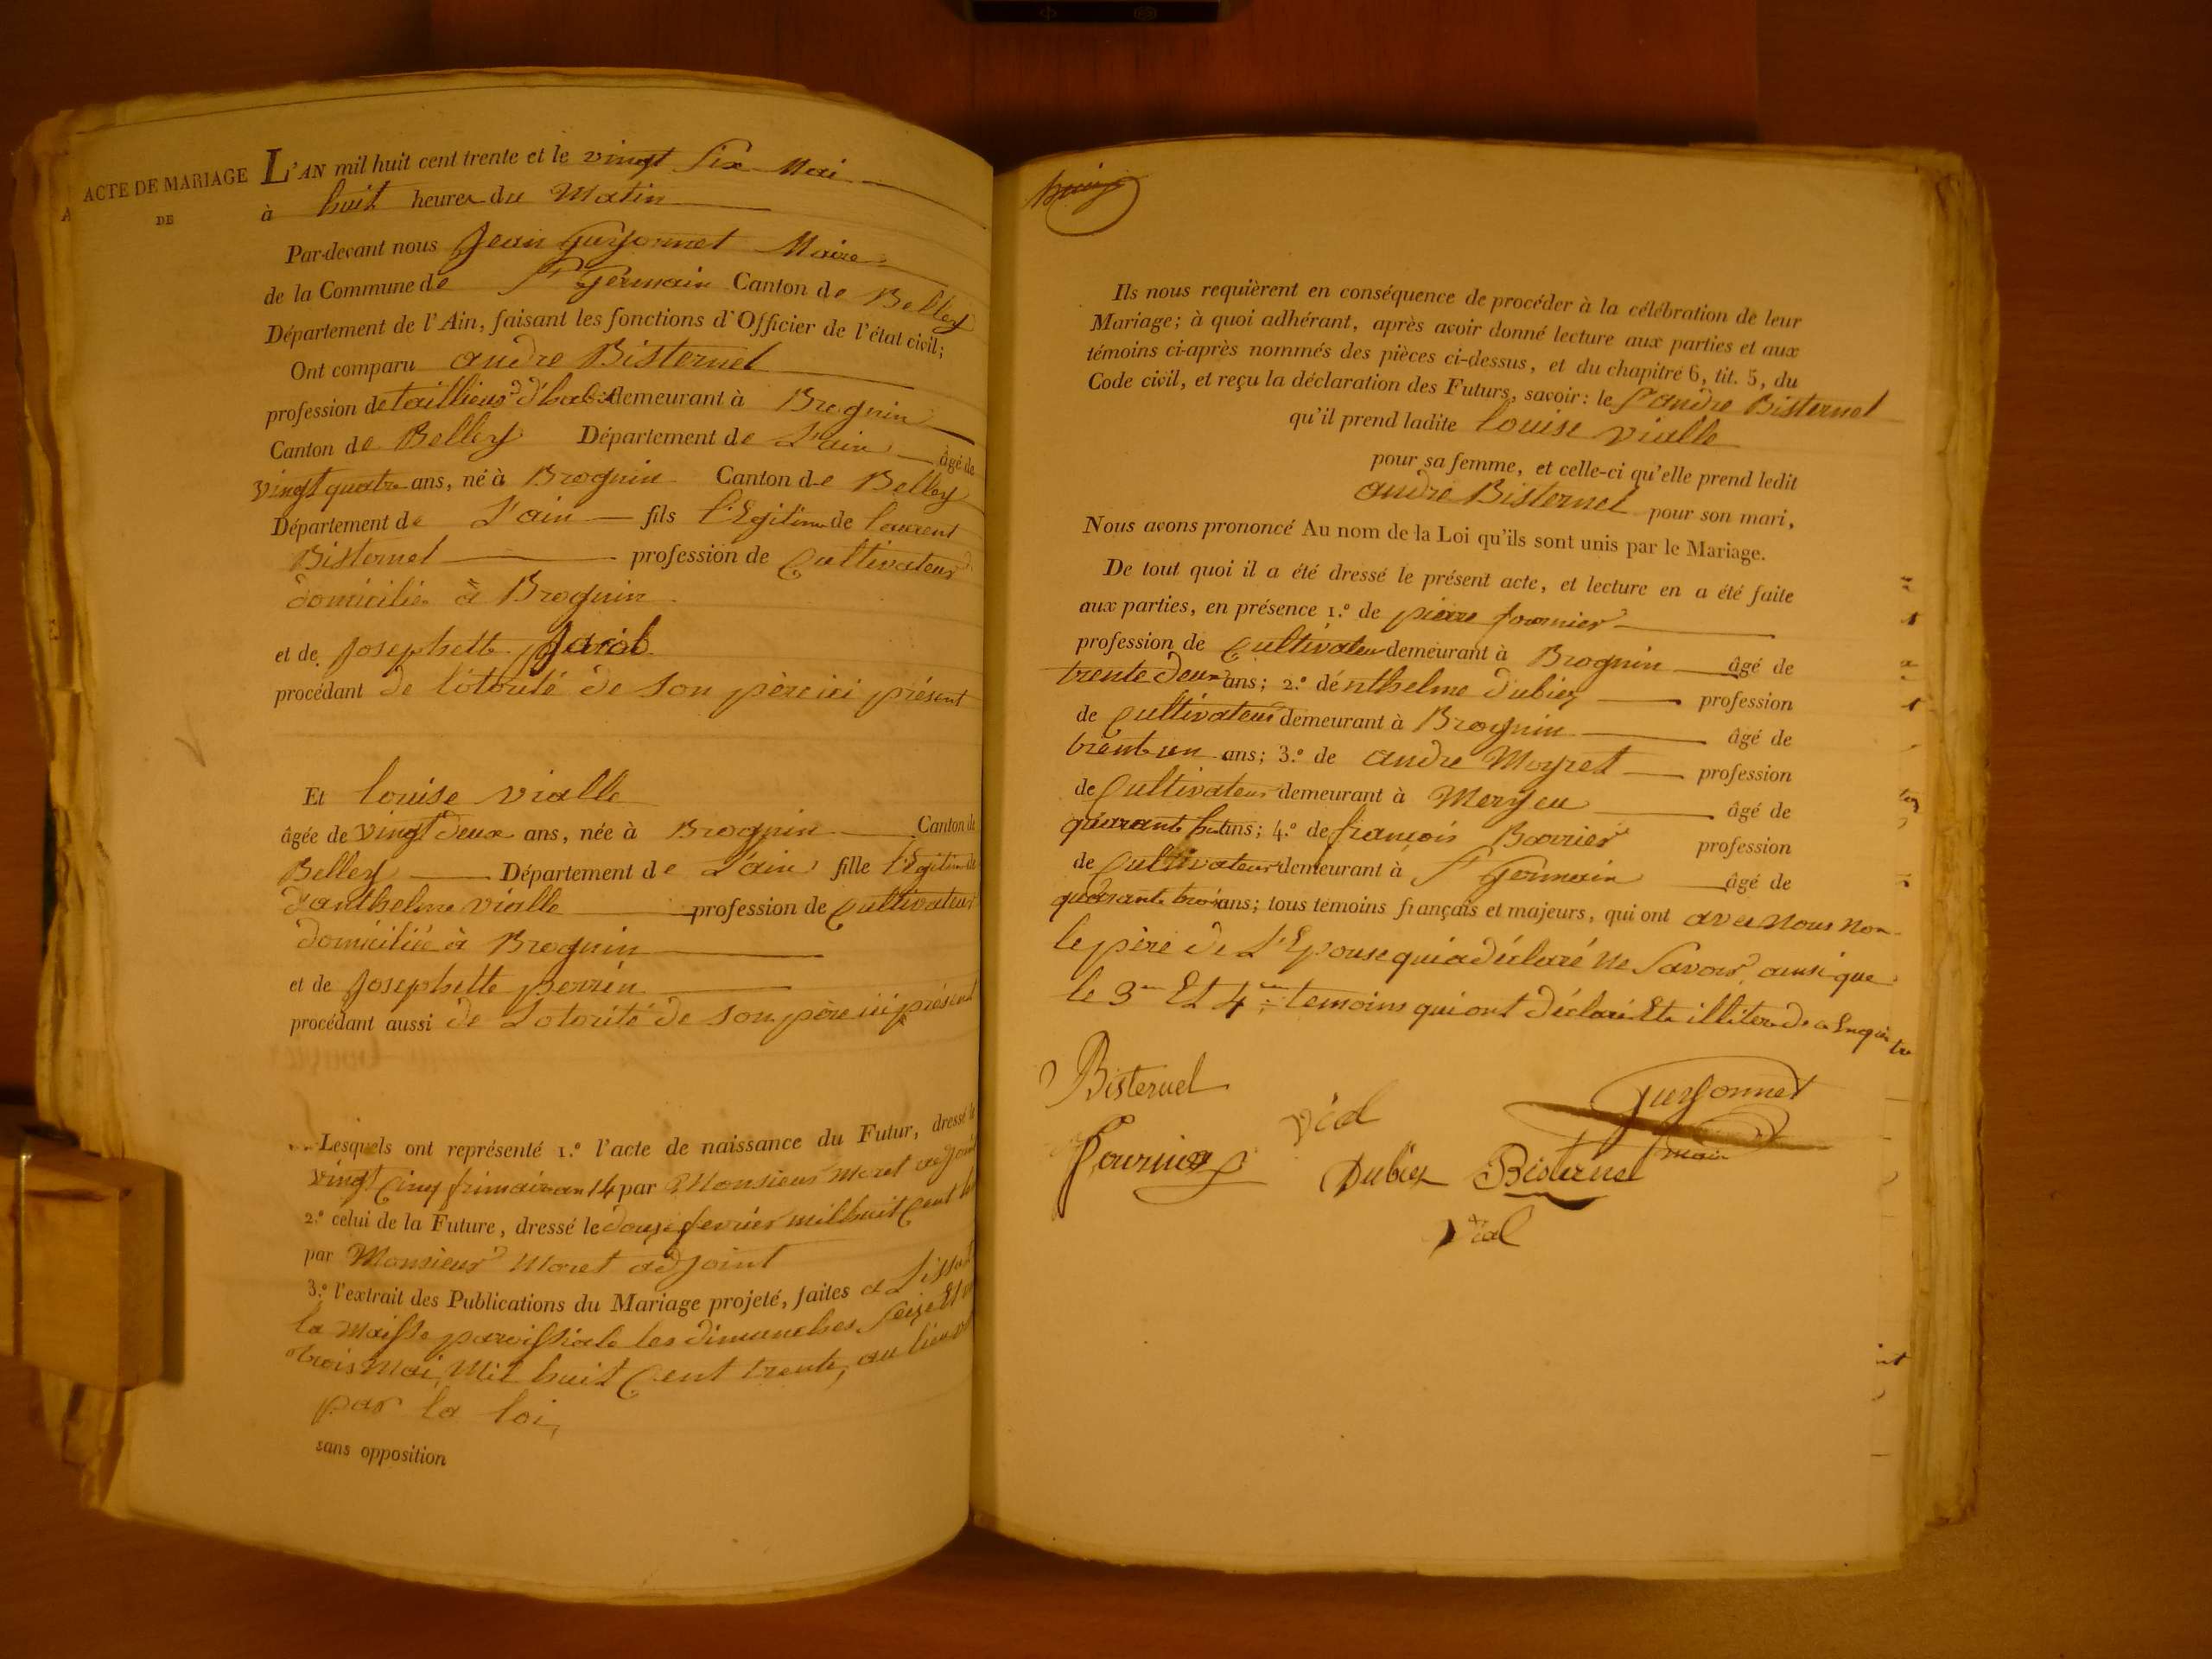 ACTE DE MARIAGE
DE
L'AN mil huit cent trente et le vingt Six Mai
à huit heures du Matin
Par-devant nous Jean Guyonnet Maire
de la Commune de St Germain Canton de Belley
Département de l'Ain, faisant les fonctions d'Officier de l'état civil;
Ont comparu andre Bisternel
profession de taillieur d'habit demeurant à Brognin
Canton de Belley Département de L'ain âgé de
vingt quatre ans, né à Brognin Canton de Belley
Département de L'ain fils l'Egitime de laurent
Bisternel profession de Cultivateur
domicilié à Brognin
et de Josephette Jacob
procédant de l'otorité de son père ici présent
Et louise vialle
âgée de vingt deux ans, née à Brognin Canton de
Belley Département de L'ain fille l'Egitime de
d'anthelme vialle profession de Cultivateur
domicilié à Brognin
et de Josephette perrin
procédant aussi de Lotorité de son père ici présent
Lesquels ont représenté 1.º l'acte de naissance du Futur, dressé le
vingt Cinq frimaire an 14 par Monsieur Moret adjoint
2.º celui de la Future, dressé le douze fevrier mil huit Cent
par Monsieur Moret adjoint
3.º l'extrait des Publications du Mariage projeté, faites a L'issue
la Maisse paroissiale les dimanches Seize Et
trois Mai, Mil huit Cent trente, au lieu
par la loi,
sans opposition
Ils nous requièrent en conséquence de procéder à la célébration de leur
Mariage; à quoi adhérant, après avoir donné lecture aux parties et aux
témoins ci-après nommés des pièces ci-dessus, et du chapitre 6, tit. 5, du
Code civil, et reçu la déclaration des Futurs, savoir: le S andre Bisternel
qu'il prend ladite louise vialle
pour sa femme, et celle-ci qu'elle prend ledit
andre Bisternel pour son mari,
Nous avons prononcé Au nom de la Loi qu'ils sont unis par le Mariage.
De tout quoi il a été dressé le présent acte, et lecture en a été faite
aux parties, en présence 1.º de pierre fournier
profession de Cultivateur demeurant à Brognin âgé de
trente deux ans; 2.º de nthelme dubiez profession
de Cultivateur demeurant à Brognin âgé de
trente un ans; 3.º de andre Moyret profession
de Cultivateur demeurant à Meryeu âgé de
quarante huit ans; 4.º de françois Barrier profession
de Cultivateur demeurant à St Germain âgé de
quarante trois ans; tous témoins français et majeurs, qui ont avec Nous Non
le père de L'Epouse qui a déclaré ne Savoir ainsi que
le 3me Et 4me temoins qui ont déclaré Etre illitere de ce Enquis
Bisternel
Guyonnet
vial
Maire
Fournier
Dubiez Bisternel
vial